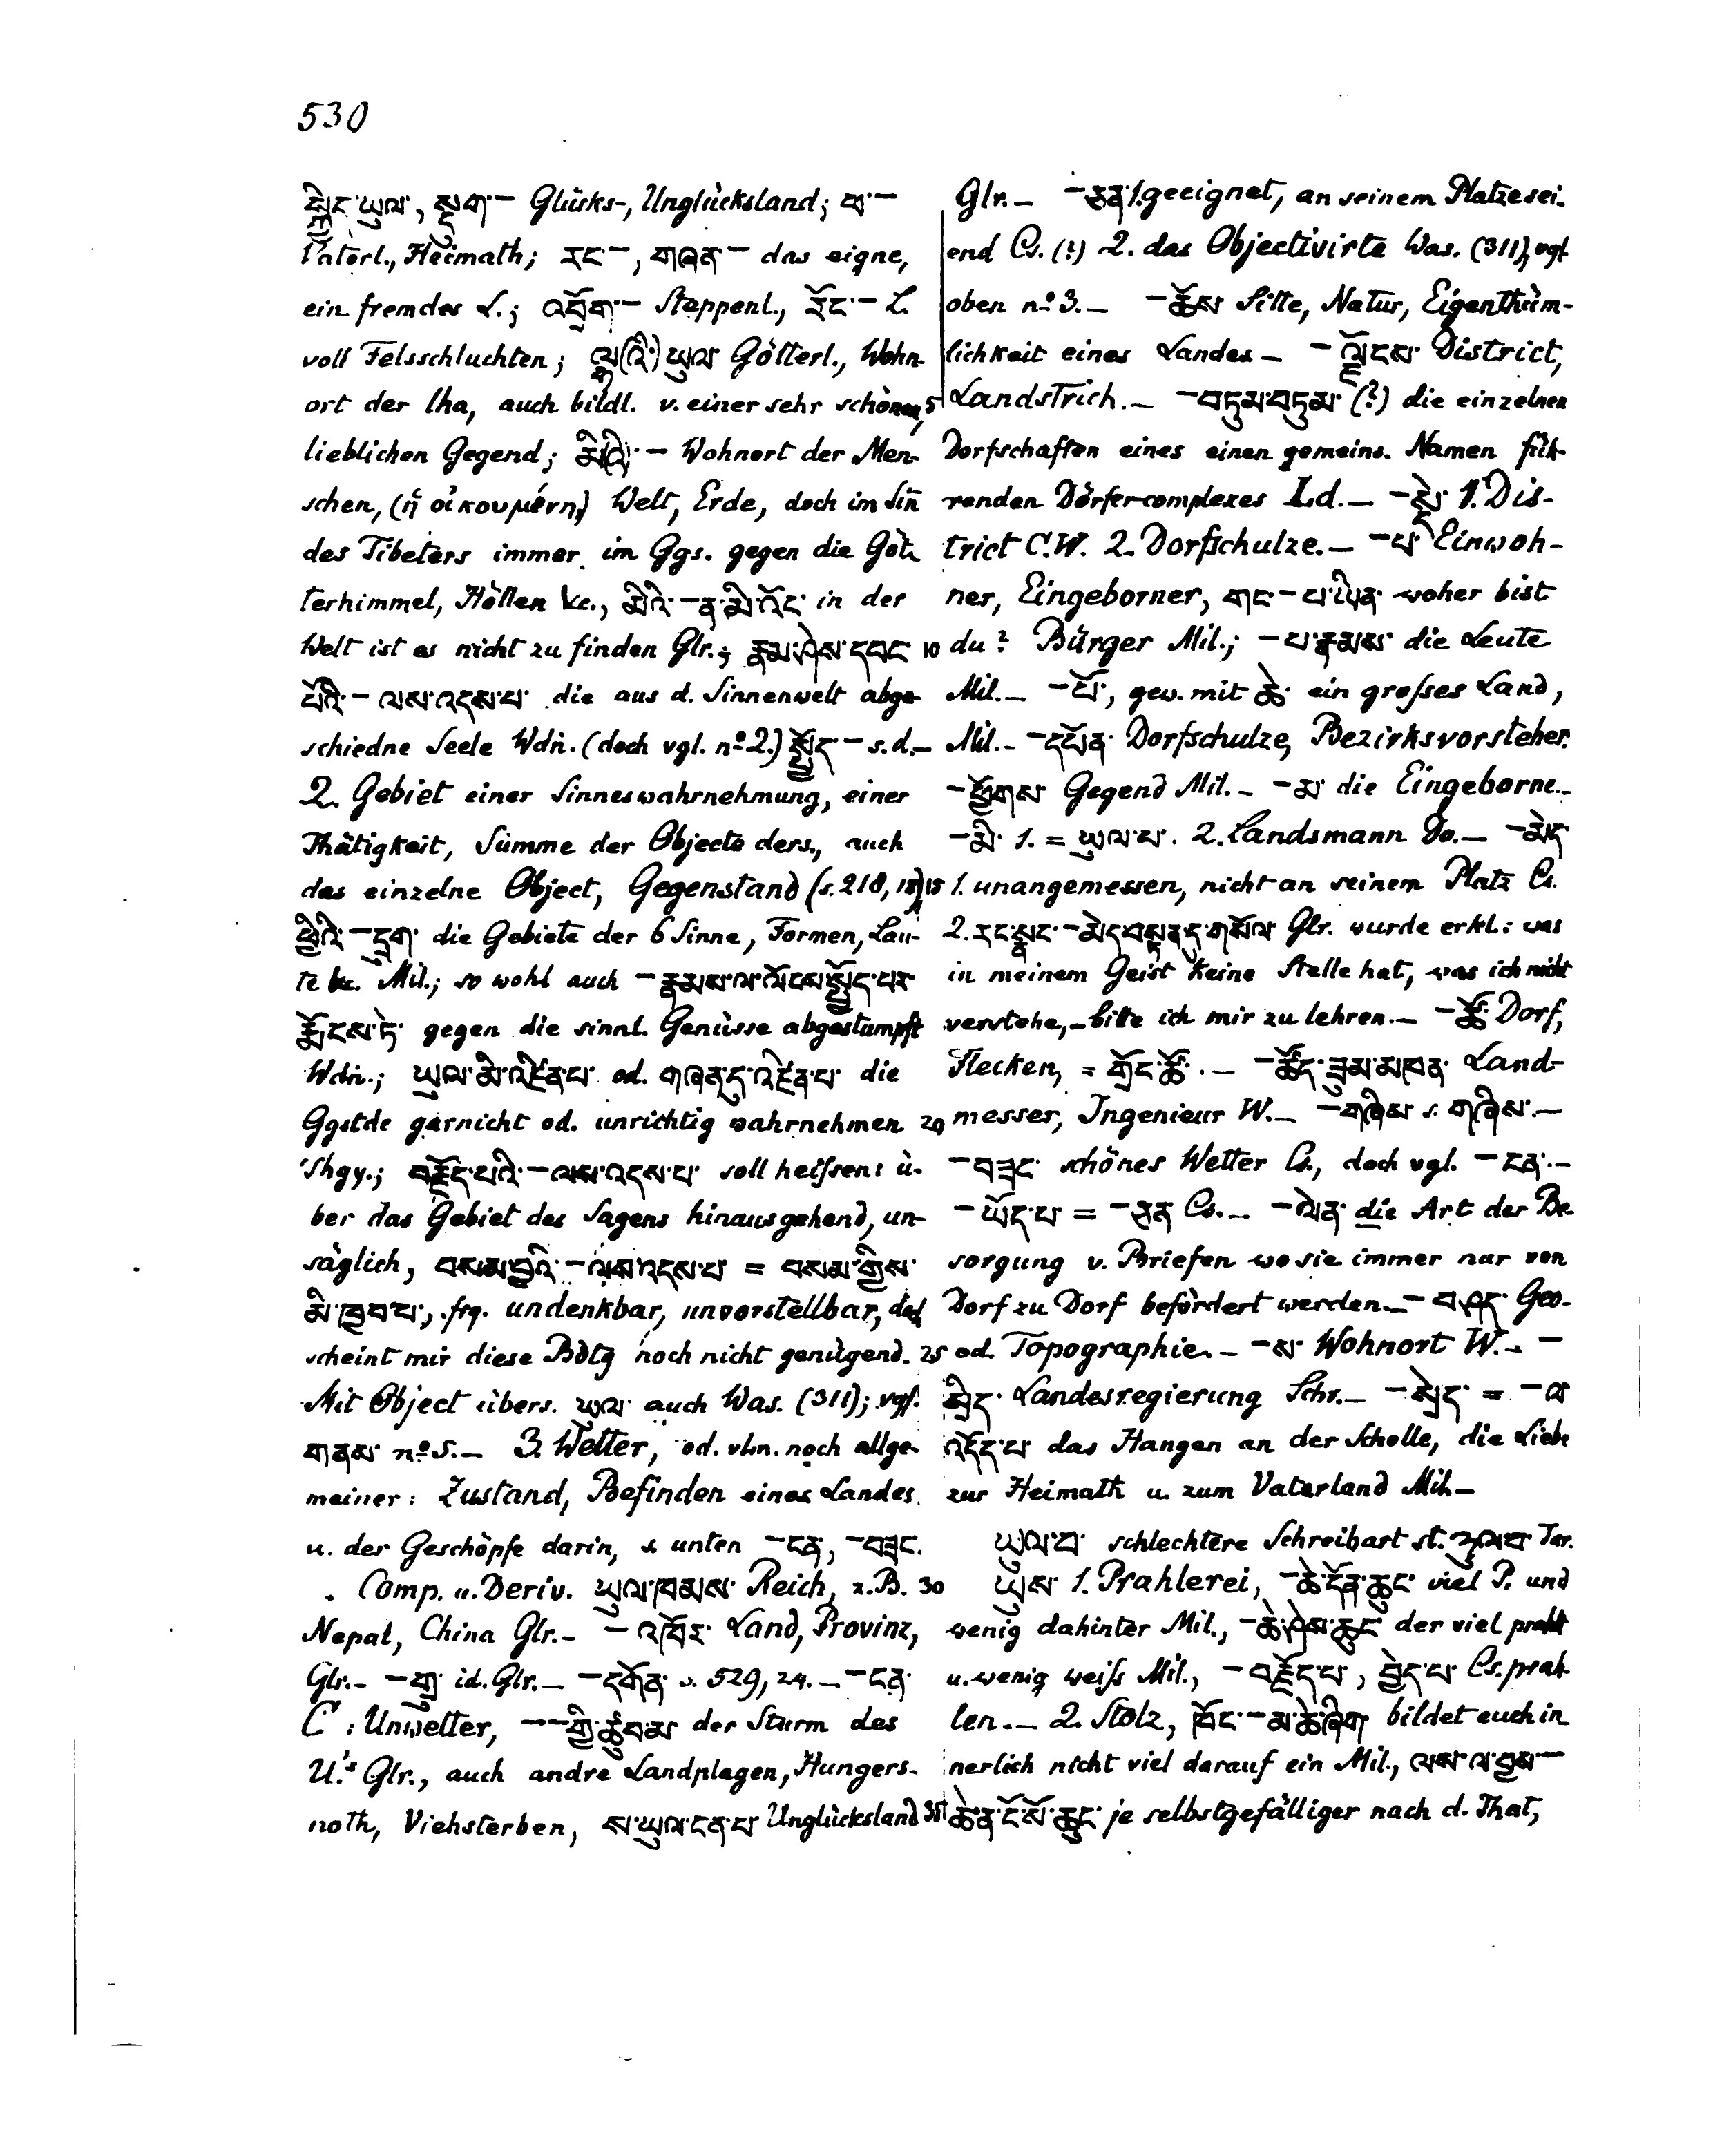 530
སྐྱིད་ཡུལ་, སྡུག་— Glücks-, Unglücksland; ཕ་—
Vaterl., Heimath; རང་—, གཞན་— das eigne,
ein fremdes L.; འབྲོག་— Steppenl., རོང་— L.
voll Felsschluchten; ལྷ(འི་)ཡུལ་ Götterl., Wohn-
ort der lha, auch bildl. v. einer sehr schönen, 5
lieblichen Gegend; མི(འི)་— Wohnort der Men-
schen, (ἡ οἰκουμένη) Welt, Erde, doch im Sin̄
des Tibeters immer im Ggs. gegen die Göt-
terhimmel, Höllen &c., མིའི་—ན་མི་འོང་ in der
Welt ist es nicht zu finden Glr.; རྣམ་ཤེས་དབང་ 10
པོའི་— ལས་འདས་པ་ die aus d. Sinnenwelt abge-
schiedne Seele Wdn. (doch vgl. no. 2.) སྤྱོད་— s. d. —
2. Gebiet einer Sinneswahrnehmung, einer
Thätigkeit, Summe der Objecte ders., auch
das einzelne Object, Gegenstand (s. 218, 18) 15
ཕྱིའི་—དྲུག་ die Gebiete der 6 Sinne, Formen, Lau-
te &c. Mil.; so wohl auch —རྣམས་ལ་ལོངས་སྤྱོད་པར་
རྨོངས་ཏེ་ gegen die sinnl. Genüsse abgestumpft
Wdn.; ཡུལ་མི་འཛིན་པ་ od. གཞན་དུ་འཛིན་པ་ die
Ggstde garnicht od. unrichtig wahrnehmen 20
Shgy.; བརྗོད་པའི་—ལས་འདས་པ་ soll heißen: ü-
ber das Gebiet des Sagens hinausgehend, un-
säglich, བསམ་བྱའི་—ལས་འདས་པ་ = བསམ་གྱིས་
མི་ཁྱབ་པ་, frq. undenkbar, unvorstellbar, doch
scheint mir diese Bdtg noch nicht genügend. 25
Mit Object übers. ཡུལ་ auch Was. (311); vgl.
གནས་ no. 5. — 3. Wetter, od. vlm. noch allge-
meiner: Zustand, Befinden eines Landes
u. der Geschöpfe darin, s. unten —ངན་, —བཟང་.
Comp. u. Deriv. ཡུལ་ཁམས་ Reich, z. B. 30
Nepal, China Glr. — —འཁོར་ Land, Provinz,
Glr. — —གྲུ་ id. Glr. — —དགོན་ s. 529, 24. — —ངན་
C: Unwetter, — —གྱི་ཚུབ་མ་ der Sturm des
U.'s Glr., auch andre Landplagen, Hungers-
noth, Viehsterben, ས་ཡུལ་ངན་པ་ Unglücksland 35
Glr. — —ཅན་ 1. geeignet, an seinem Platze sei-
end Cs. (?) 2. das Objectivirte Was. (311), vgl.
oben no. 3. — —ཆོས་ Sitte, Natur, Eigenthüm-
lichkeit eines Landes — —ལྗོངས་ District,
Landstrich. — —བཏུམ་བཏུམ་ (?) die einzelnen
Dorfschaften eines einen gemeins. Namen füh-
renden Dörfercomplexes Ld. — —སྡེ་ 1. Dis-
trict C. W. 2. Dorfschulze. — —པ་ Einwoh-
ner, Eingeborner, གང་—པ་ཡིན་ woher bist
du? Bürger Mil.; —པ་རྣམས་ die Leute
Mil. — —པོ་, gew. mit ཆེ་ ein großes Land,
Mil. — —དཔོན་ Dorfschulze, Bezirksvorsteher.
—ཕྱོགས་ Gegend Mil. — —མ་ die Eingeborne. —
—མི་ 1. = ཡུལ་པ་. 2. Landsmann Do. — —མེད་
1. unangemessen, nicht an seinem Platz Cs.
2. རང་སྣང་—མེད་བསྟན་དུ་གསོལ་ Glr. wurde erkl.: was
in meinem Geist keine Stelle hat, was ich nicht
verstehe, – bitte ich mir zu lehren. — —ཚོ་ Dorf,
Flecken, = གྲོང་ཚོ་. — —ཚོད་ཟུམ་མཁན་ Land-
messer, Ingenieur W. — —གཞིས་ s. གཞིས་. —
—བཟང་ schönes Wetter Cs., doch vgl. —ངན་. —
—ཡོད་པ་ = —ཅན་ Cs. — —ལེན་ die Art der Be-
sorgung v. Briefen wo sie immer nur von
Dorf zu Dorf befördert werden. — —བཤད་ Geo-
od. Topographie. — —ས་ Wohnort W. — —
སྲིད་ Landesregierung Schr. — —སྲེད་ = —ལ་
འདོད་པ་ das Hangen an der Scholle, die Liebe
zur Heimath u. zum Vaterland Mil. —
ཡུལ་བ་ schlechtere Schreibart st. འུལ་བ་ Tar.
ཡུས་ 1. Prahlerei, —ཆེ་དོན་ཆུང་ viel P. und
wenig dahinter Mil., —ཆེ་ཤེས་ཆུང་ der viel prahlt
u. wenig weiß Mil., —བརྗོད་པ་, བྱེད་པ་ Cs. prah-
len. — 2. Stolz, ཁོང་—མ་ཆེ་ཞིག་ bildet euch in
nerlich nicht viel darauf ein Mil., ལས་ལ་བྱས་—
ཆེ་ན་ངོ་སོ་ཆུང་ je selbstgefälliger nach d. That,